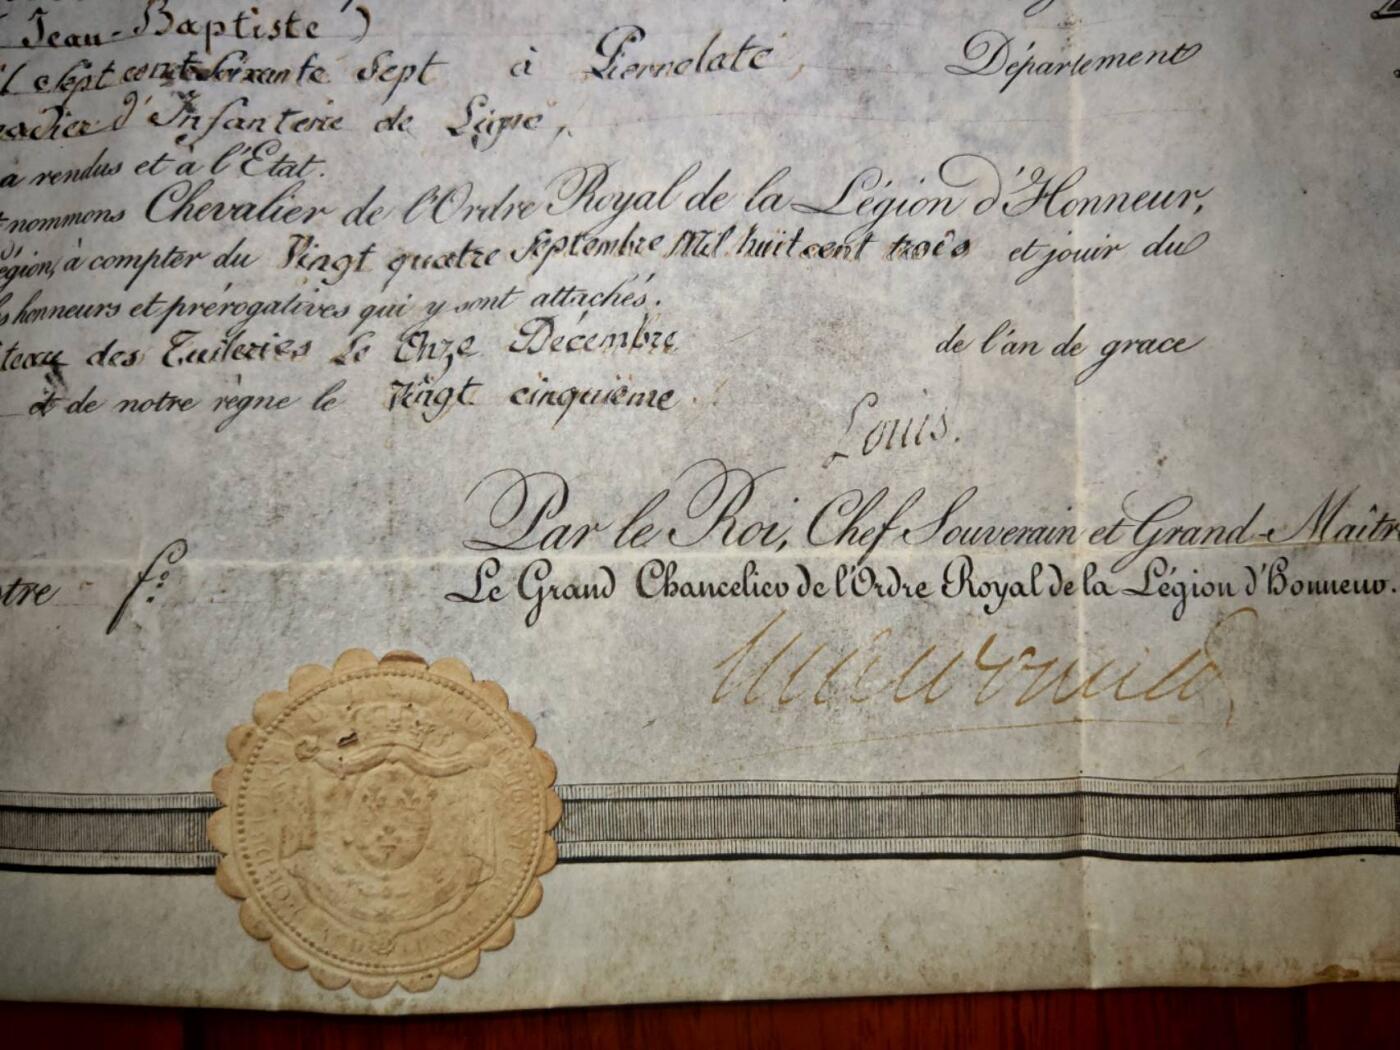 (Jean-Baptiste)
sept cent soixante sept à Pierrelate, Département
d'Infanterie de Ligne,
a rendus et à l'Etat.
nommons Chevalier de l'Ordre Royal de la Légion d'Honneur,
égion, à compter du Vingt quatre Septembre Mil huit cent trois et jouir du
honneurs et prérogatives qui y sont attachés.
teau des Tuileries le Onze Décembre de l'an de grace
et de notre règne le Vingt cinquième
Louis.
Par le Roi, Chef Souverain et Grand-Maître
tre fo:
Le Grand Chancelier de l'Ordre Royal de la Légion d'Honneur.